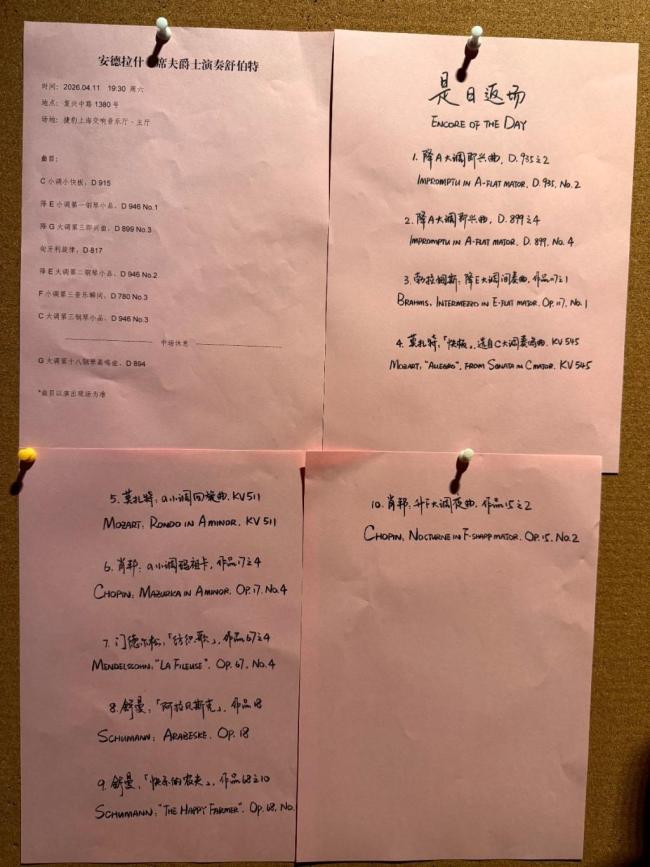 安德拉什 席夫爵士演奏舒伯特
时间：2026.04.11 19:30 周六
地点：复兴中路 1380 号
场地：捷豹上海交响音乐厅 · 主厅
曲目：
C 小调小快板，D 915
降 E 小调第一钢琴小品，D 946 No.1
降 G 大调第三即兴曲，D 899 No.3
匈牙利旋律，D 817
降 E 大调第二钢琴小品，D 946 No.2
F 小调第三音乐瞬间，D 780 No.3
C 大调第三钢琴小品，D 946 No.3
中场休息
G 大调第十八钢琴奏鸣曲，D 894
*曲目以演出现场为准
是日返场
ENCORE OF THE DAY
1. 降A大调即兴曲，D.935之2
IMPROMPTU IN A-FLAT MAJOR, D.935, No.2
2. 降A大调即兴曲，D.899之4
IMPROMPTU IN A-FLAT MAJOR, D.899, No.4
3. 勃拉姆斯：降E大调间奏曲，作品117之1
BRAHMS, INTERMEZZO IN E-FLAT MAJOR, OP.117, No.1
4. 莫扎特，「快板」，选自C大调奏鸣曲，KV 545
MOZART, "ALLEGRO", FROM SONATA IN C MAJOR, KV 545
5. 莫扎特：a小调回旋曲，KV 511
MOZART: RONDO IN A MINOR, KV 511
6. 肖邦：a小调玛祖卡，作品17之4
CHOPIN: MAZURKA IN A MINOR, OP.17, No.4
7. 门德尔松，「纺织歌」，作品67之4
MENDELSSOHN, "LA FILEUSE", OP.67, No.4
8. 舒曼，「阿拉贝斯克」，作品18
SCHUMANN: ARABESKE, OP.18
9. 舒曼，「快乐的农夫」，作品68之10
SCHUMANN: "THE HAPPY FARMER", OP.68, No.
10. 肖邦，升F大调夜曲，作品15之2
CHOPIN, NOCTURNE IN F-SHAPP MAJOR, OP.15, No.2